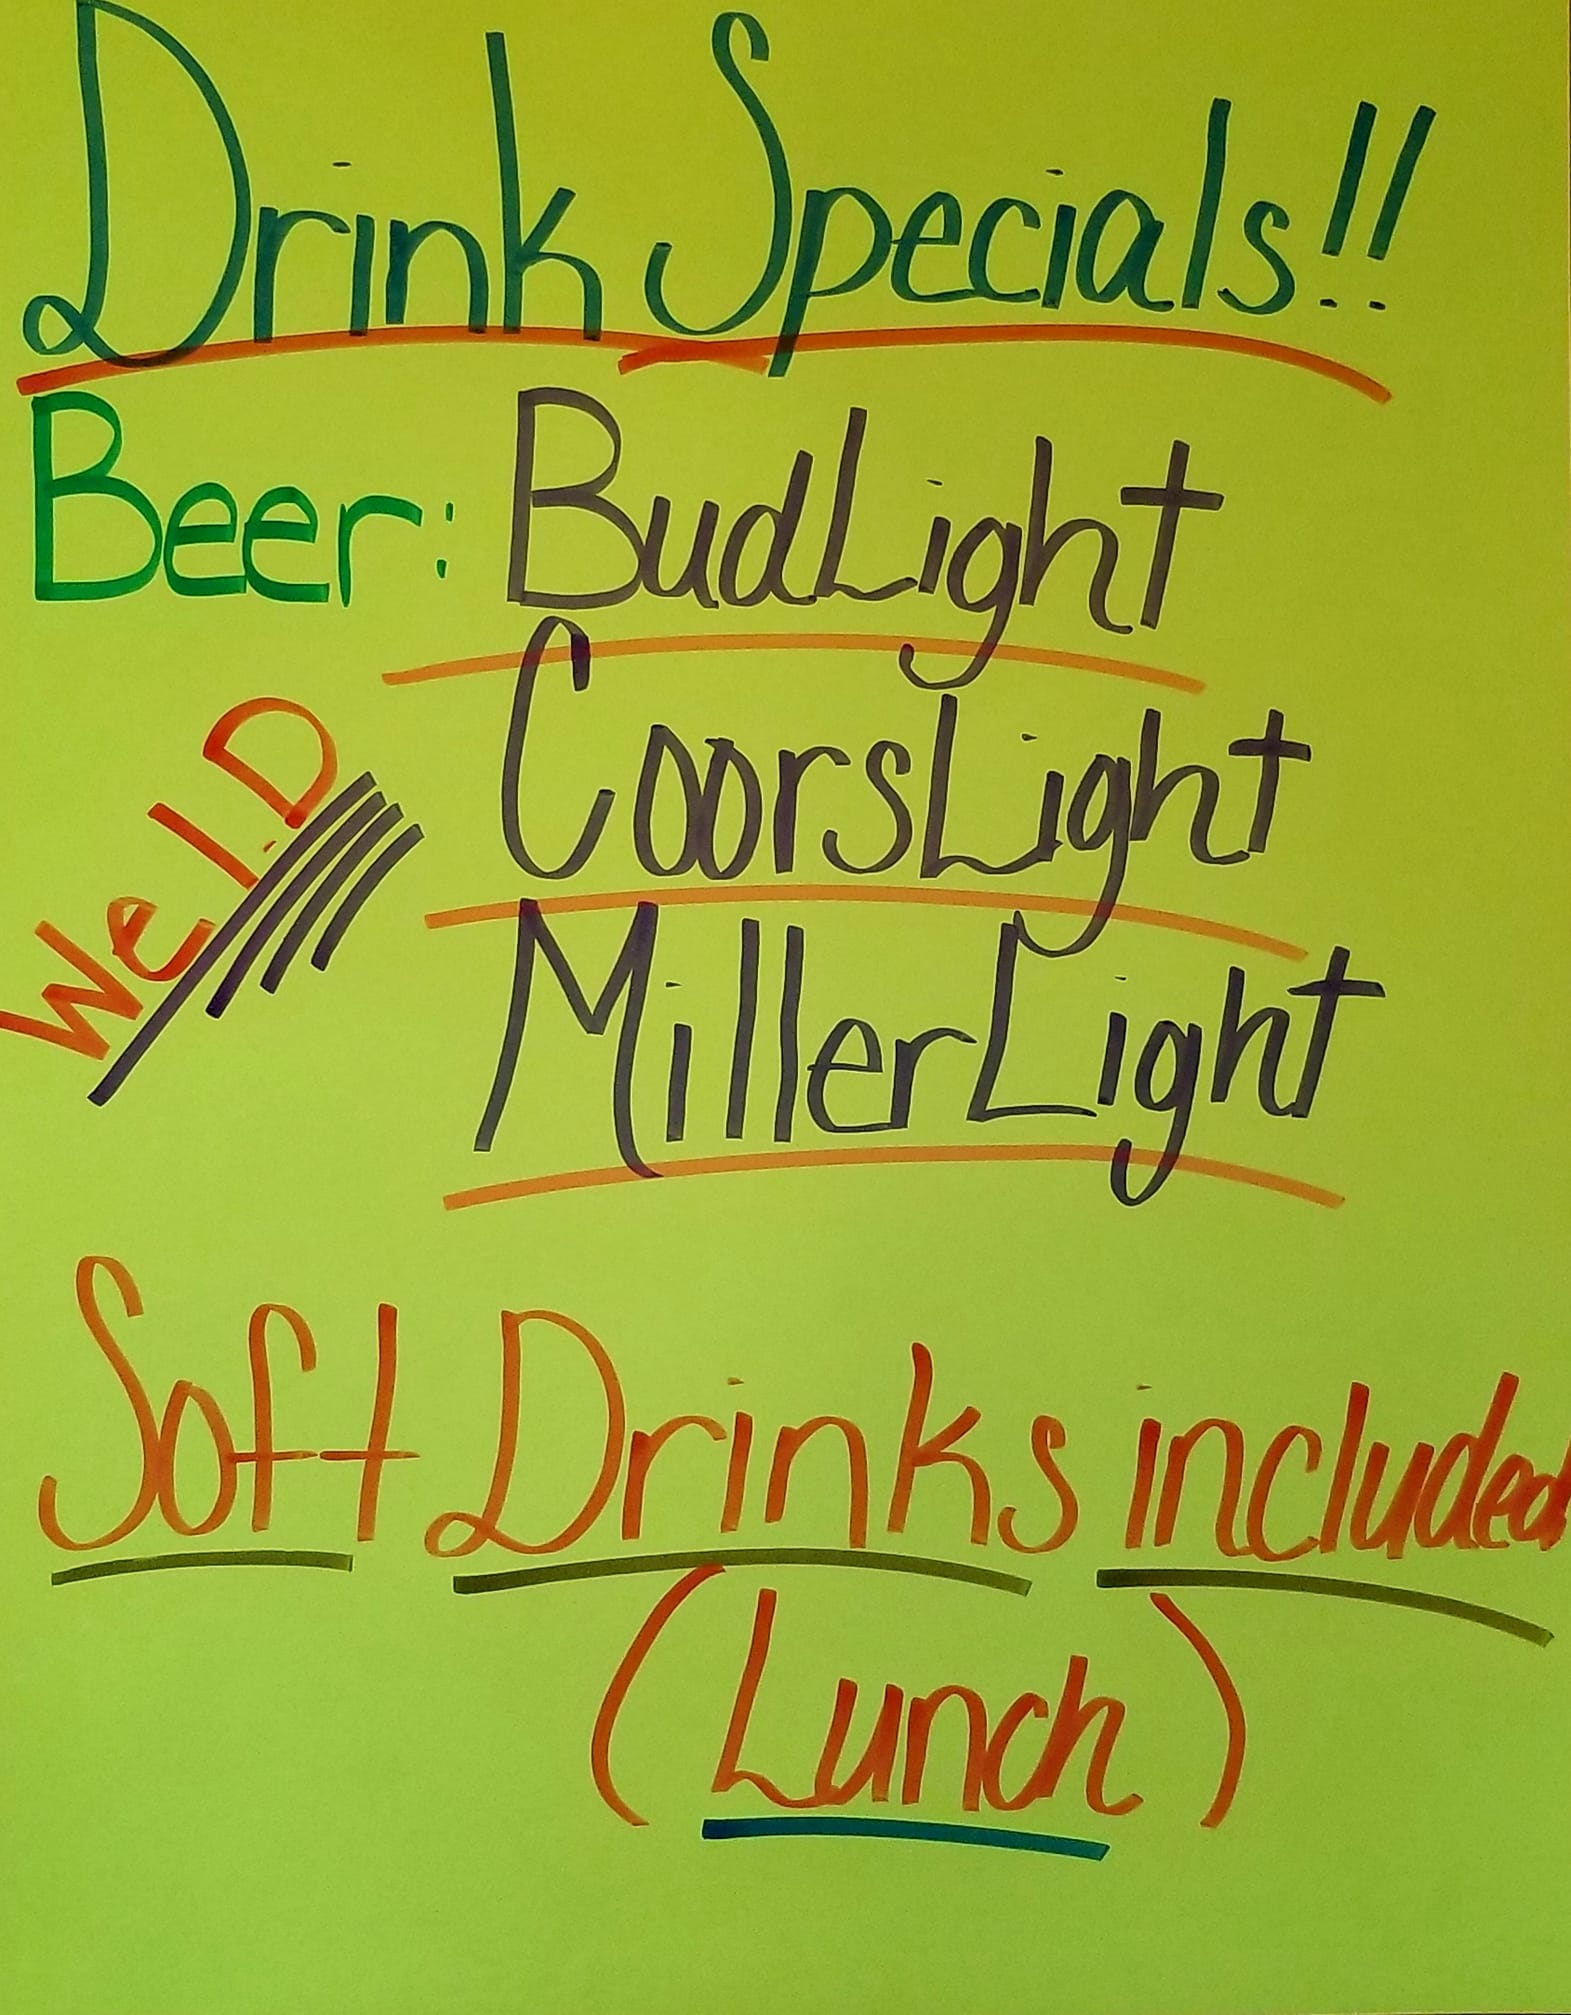 Drink Specials!!
Beer: BudLight
CoorsLight
We I.D
MillerLight
Soft Drinks included
(Lunch)